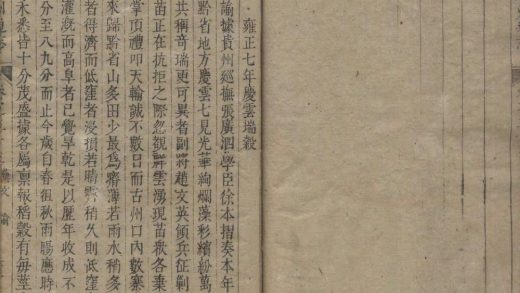 雍正七年慶雲瑞穀
諭據貴州廵撫張廣泗學臣徐本摺奏本年
黔省地方慶雲七見光華絢爛藻彩繽紛萬
共稱奇瑞更可異者副將趙文英領兵征剿
苗正在抗拒之際忽雲湧現苗衆各棄
掌頂禮叩天輸誠不數日而古州口內數寨
來歸黔省山多田少最爲瘠薄若雨水稍多
者得濟而低窪者浸損若晴霽稍久則低窪
灌漑而高阜者已覺旱乾是以豐年收成不
分至八九分而止今歲自春徂秋雨暘應時
木悉皆十分茂盛據各屬禀報稻穀有每莖